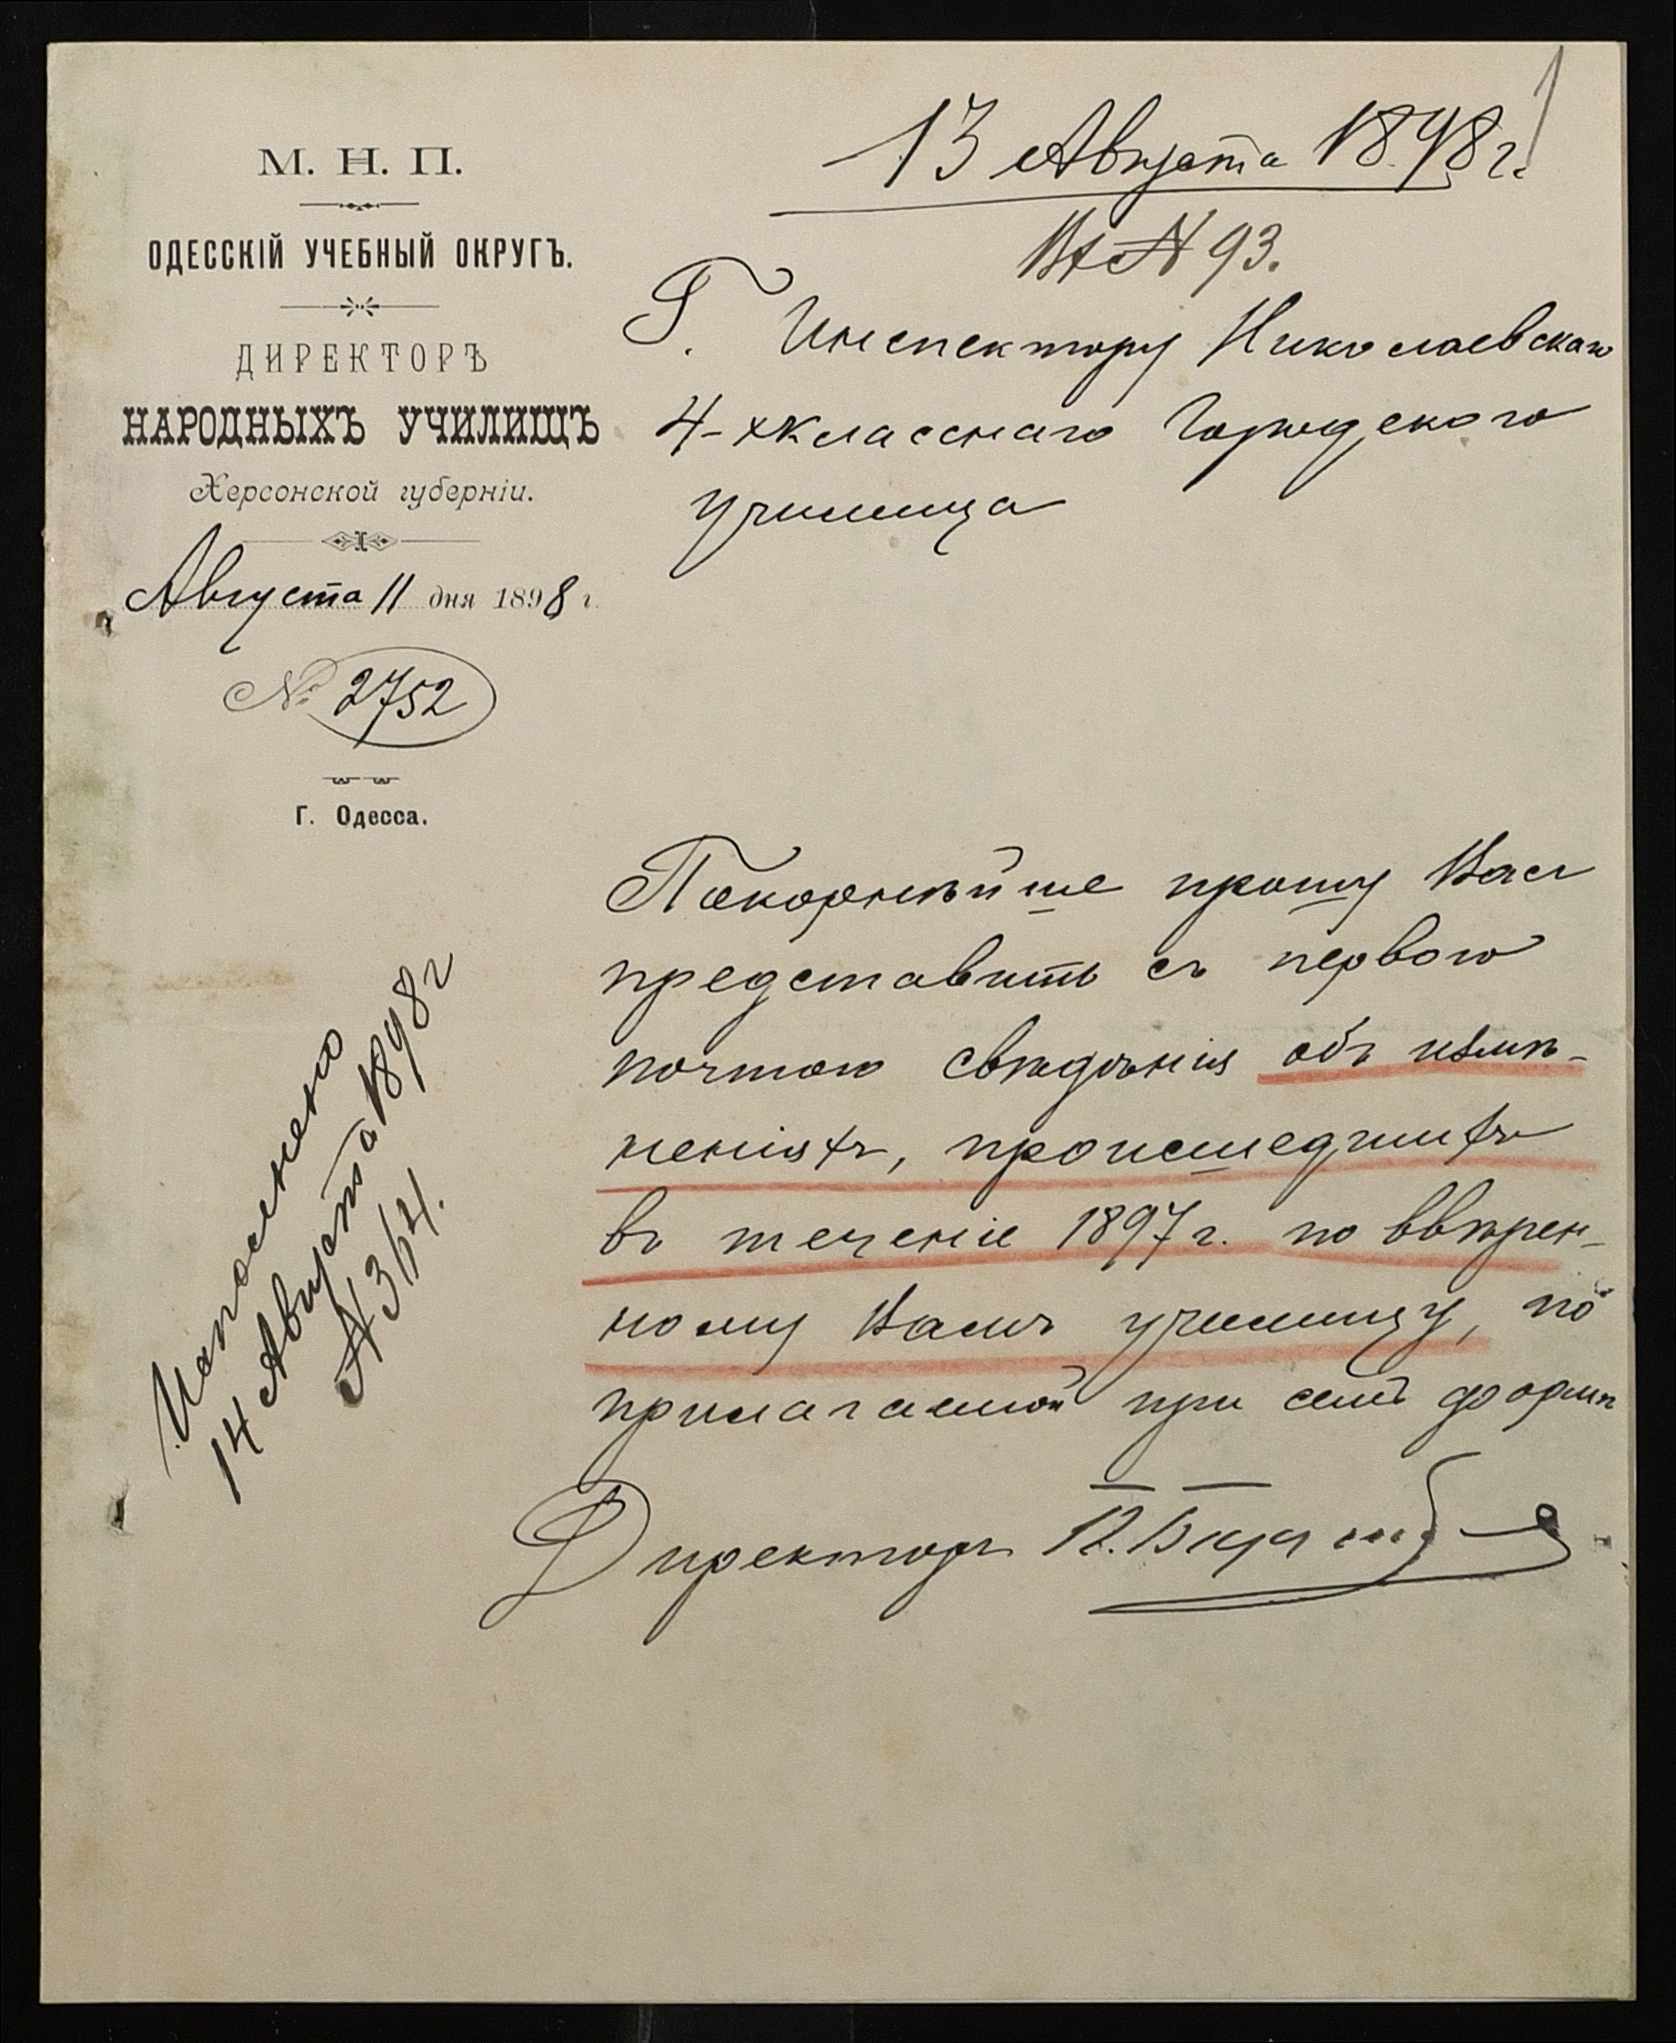 М. Н. П.
ОДЕССКІЙ УЧЕБНЫЙ ОКРУГЪ.
ДИРЕКТОРЪ
НАРОДНЫХЪ УЧИЛИЩЪ
Херсонской губерніи.
Августа 11 дня 1898 г.
№ 2752
Г. Одесса.
13 Августа 1898 г.
Вх № 93.
Г. Инспектору Николаевскаго
4-хкласснаго Городского
училища
Покорнѣйше прошу Васъ
представить съ первою
почтою свѣдѣнія объ измѣ-
неніяхъ, происшедшихъ
въ теченіе 1897 г. по ввѣрен-
ному Вамъ училищу, по
прилагаемой при семъ формѣ
Директоръ
Исполнено
14 Августа 1898 г
№ 314.